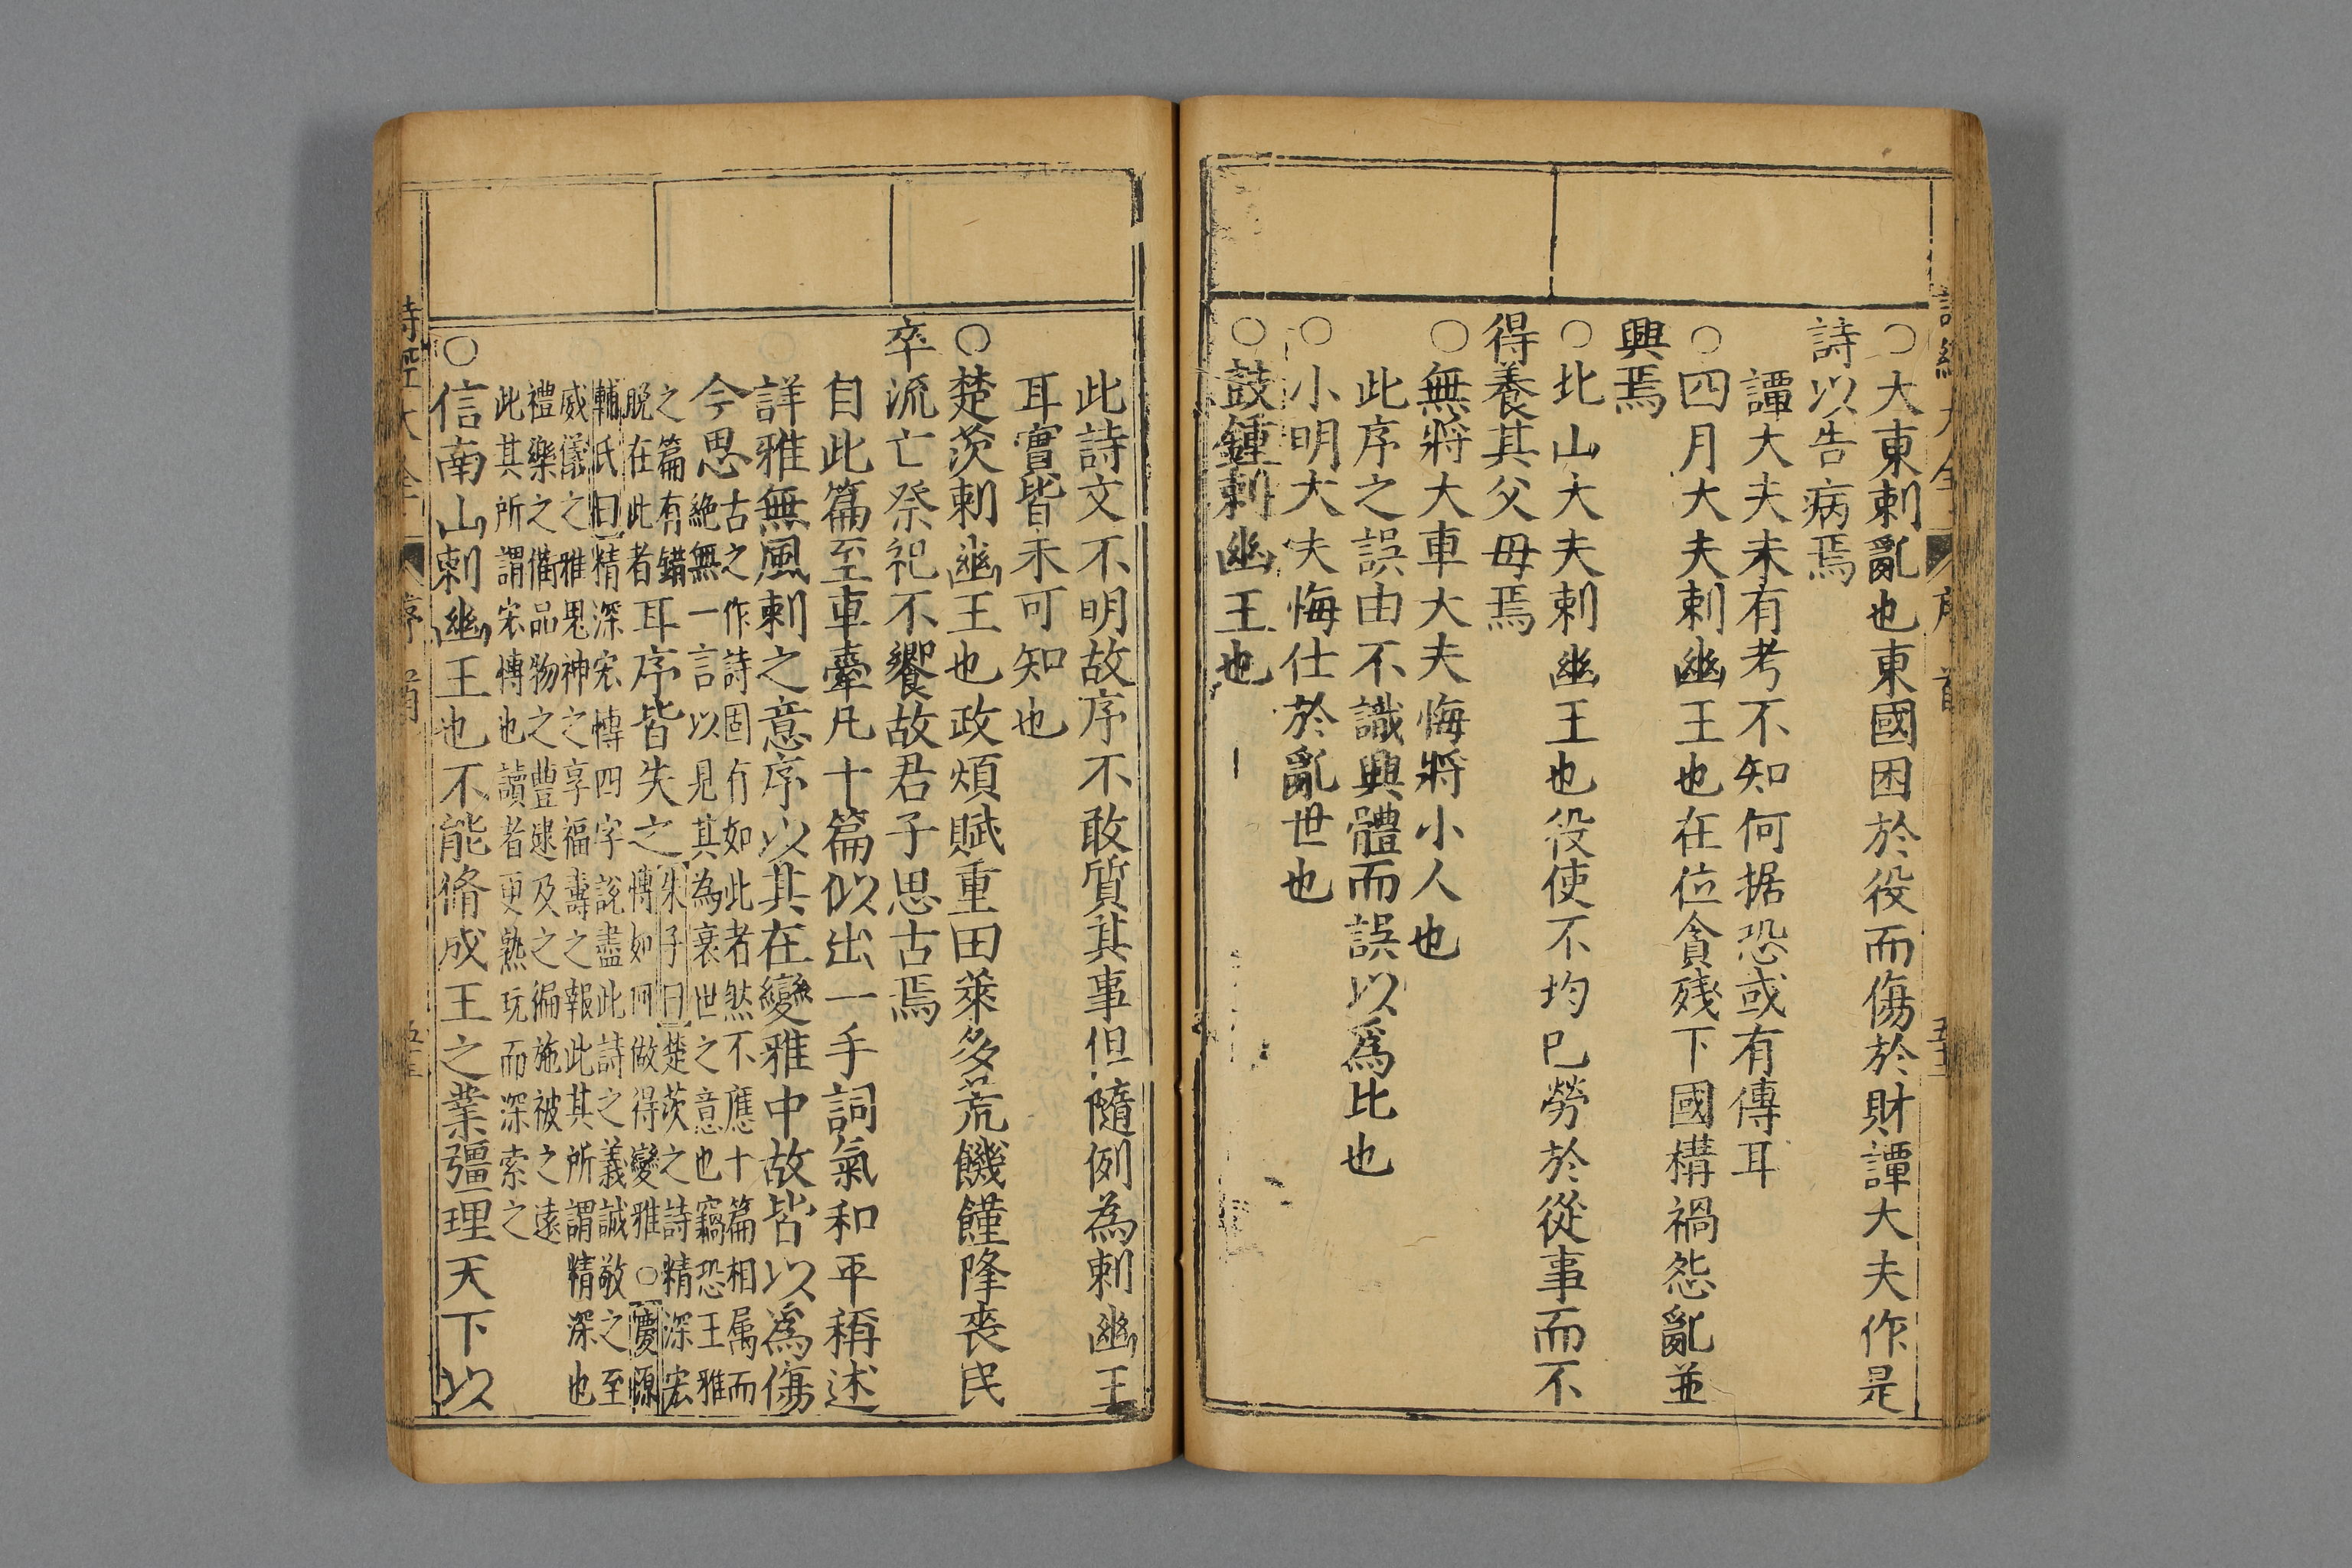 ○大東刺亂也東國困於役而傷於財譚大夫作是
詩以告病焉
譚大夫未有考不知何据恐或有傳耳
○四月大夫刺幽王也在位貪残下國構禍怨亂並
興焉
○北山大夫刺幽王也役使不均已勞於從事而不
得養其父母焉
○無將大車大夫悔將小人也
此序之誤由不識興體而誤以爲比也
○小明大夫悔仕於亂世也
○鼓鍾刺幽王也
此詩文不明故序不敢質其事但隨例為刺幽王
耳實皆未可知也
○楚茨刺幽王也政煩賦重田萊多荒饑饉降喪民
卒流亡祭祀不饗故君子思古焉
自此篇至車舝凡十篇似出一手詞氣和平稱述
詳雅無風刺之意序以其在變雅中故皆以爲傷
今思
古之作詩固有如此者然不應十篇相属而
絶無一言以見其為衰世之意也竊恐王雅
之篇有錯
脫在此者耳序皆失之
朱子曰楚茨之詩精深宏
愽如何做得變雅○慶源
輔氏曰精深宏愽四字說盡此詩之義誠敬之至
威儀之雅鬼神之享福壽之報此其所謂精深也
禮樂之備品物之豊逮及之徧施被之遠
此其所謂宏愽也讀者更熟玩而深索之
○信南山刺幽王也不能脩成王之業彊理天下以
詩經大全 序 首